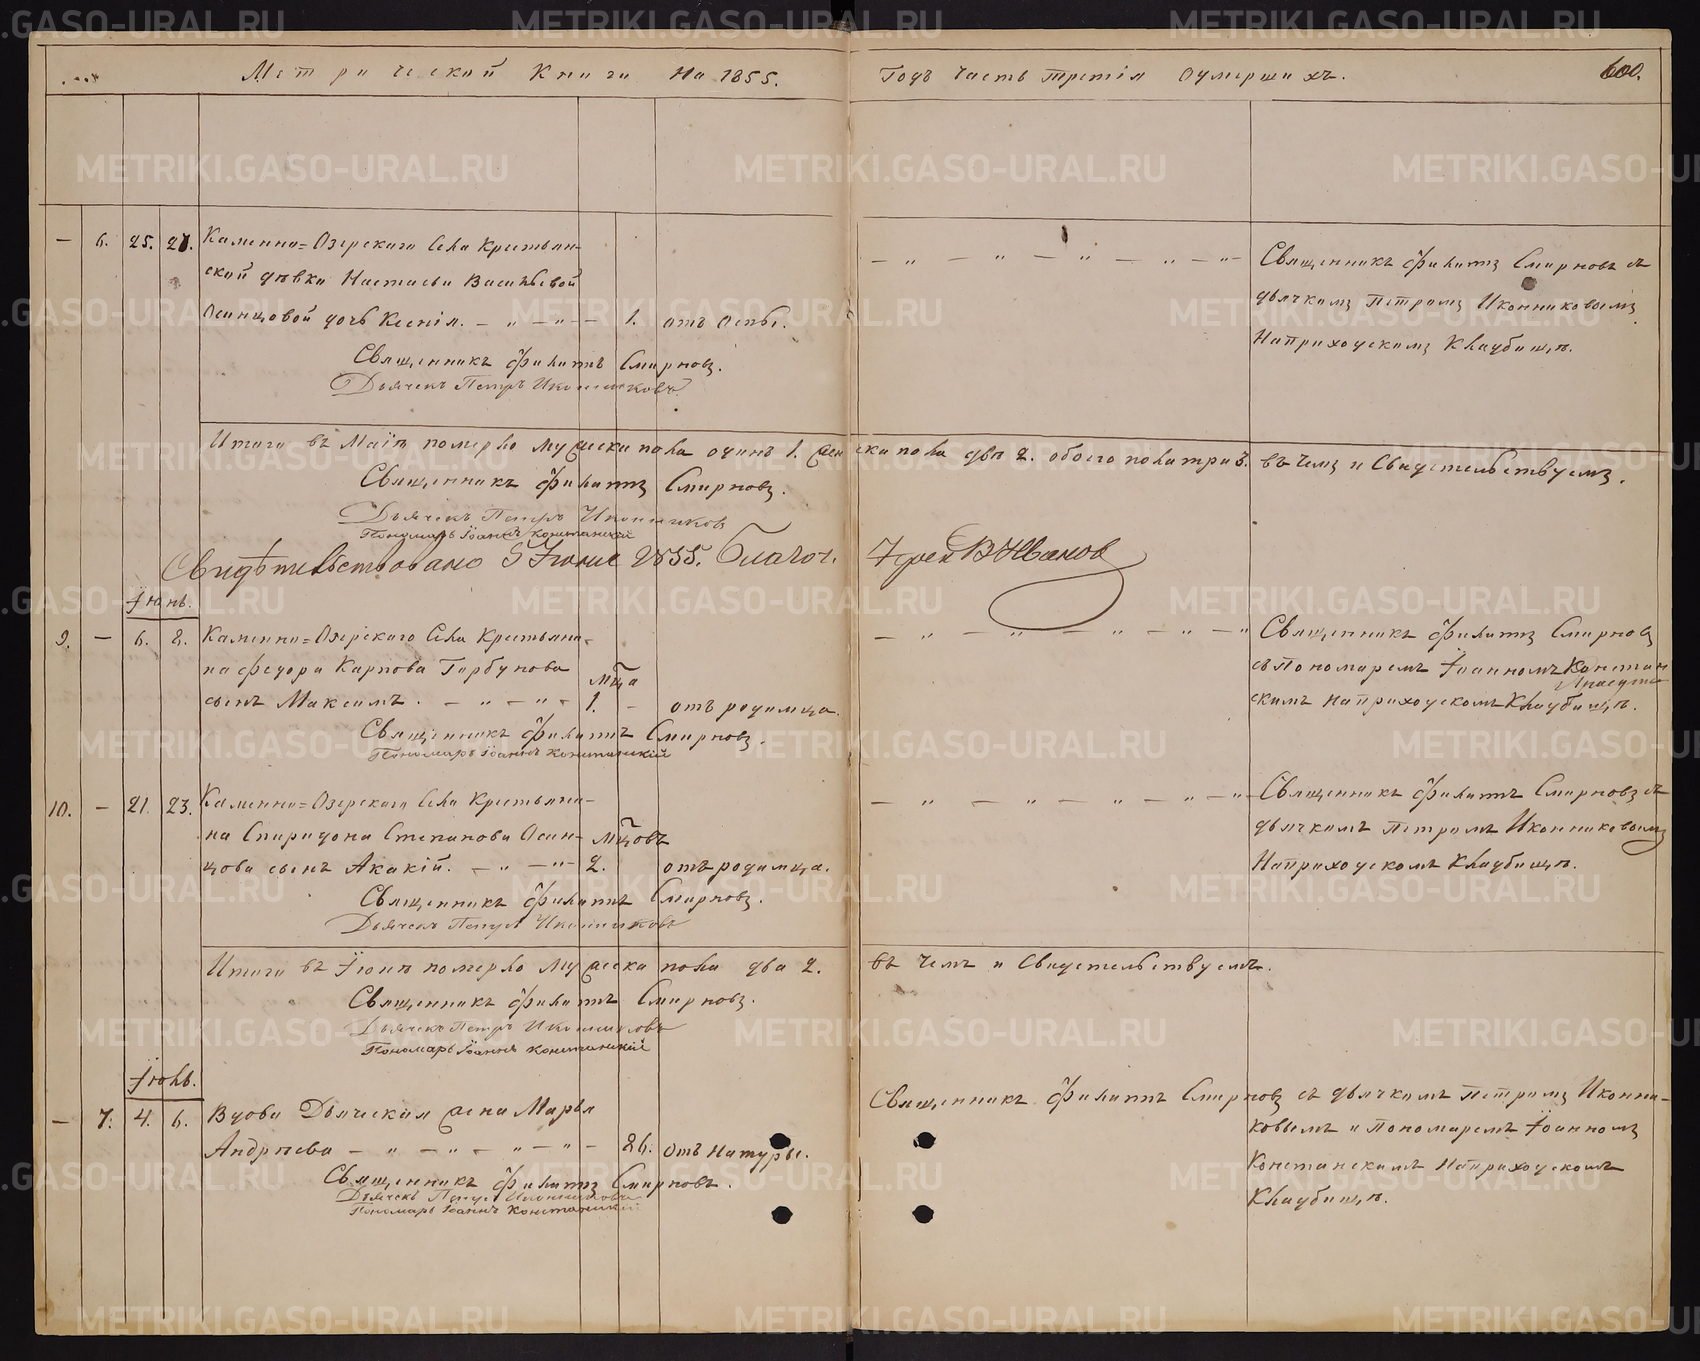 Метрической Книги На 1855.
Годъ Часть третія Оумершихъ.
600.
— 6. 25. 27. Каменно=Озерскаго Села Крестьян-
ской дѣвки Настасьи Васильевой
Осинцовой дочь Ксенія. — „ — „ — 1. отъ Оспы.
Священникъ Филиппъ Смирновъ.
Дьячекъ Петръ Иконниковъ
— „ — „ — „ — „ — „ —
Священникъ Филиппъ Смирновъ съ
дьячкомъ Петромъ Иконниковымъ
На приходскомъ Кладбищѣ.
Итого въ Маѣ померло мужеска пола одинъ 1. женска пола две 2. обоего пола три 3. въ чемъ и Свидетельствуемъ.
Священникъ Филиппъ Смирновъ.
Дьячекъ Петръ Иконников
Пономарь Іоаннъ Констанскій
Свидѣтельствовано 5 Іюня 1855. Благоч. Іерей В Иванов
Іюнь.
9. — 6. 8. Каменно=Озерскаго Села Крестьяни-
на Федора Карпова Горбунова мца
сынъ Максимъ. — „ — „ — 1. — отъ родимца.
Священникъ Филиппъ Смирновъ.
Пономарь Іоаннъ Констанскій
— „ — „ — „ — „ — „
Священникъ Филиппъ Смирновъ
съ Пономаремъ Іоанномъ Констан
скимъ На приходскомъ Кладбищѣ.
10. — 21. 23. Каменно=Озерскаго Села Крестьяни-
на Спиридона Степанова Осин- мцовъ
цова сынъ Акакій. — „ — „ — 2. отъ родимца.
Священникъ Филиппъ Смирновъ.
Дьячекъ Петръ Иконниковъ
— „ — „ — „ — „ — „ —
Священникъ Филиппъ Смирновъ съ
дьячкомъ Петромъ Иконниковымъ
На приходскомъ Кладбищѣ.
Итого въ Іюнѣ померло мужеска пола два 2. въ чемъ и Свидетельствуемъ.
Священникъ Филиппъ Смирновъ.
Дьячекъ Петръ Иконниковъ
Пономарь Іоаннъ Констанскій
Іюль.
— 7. 4. 6. Вдова Дьяческая жена Марья
Андреева — „ — „ — „ — „ — 86. Отъ Натуры.
Священникъ Филиппъ Смирновъ.
Дьячекъ Петръ Иконниковъ
Пономарь Іоаннъ Констанскій
Священникъ Филиппъ Смирновъ съ дьячкомъ Петромъ Иконни-
ковымъ и Пономаремъ Іоанномъ
Констанскимъ На приходскомъ
Кладбищѣ.
METRIKI.GASO-URAL.RU